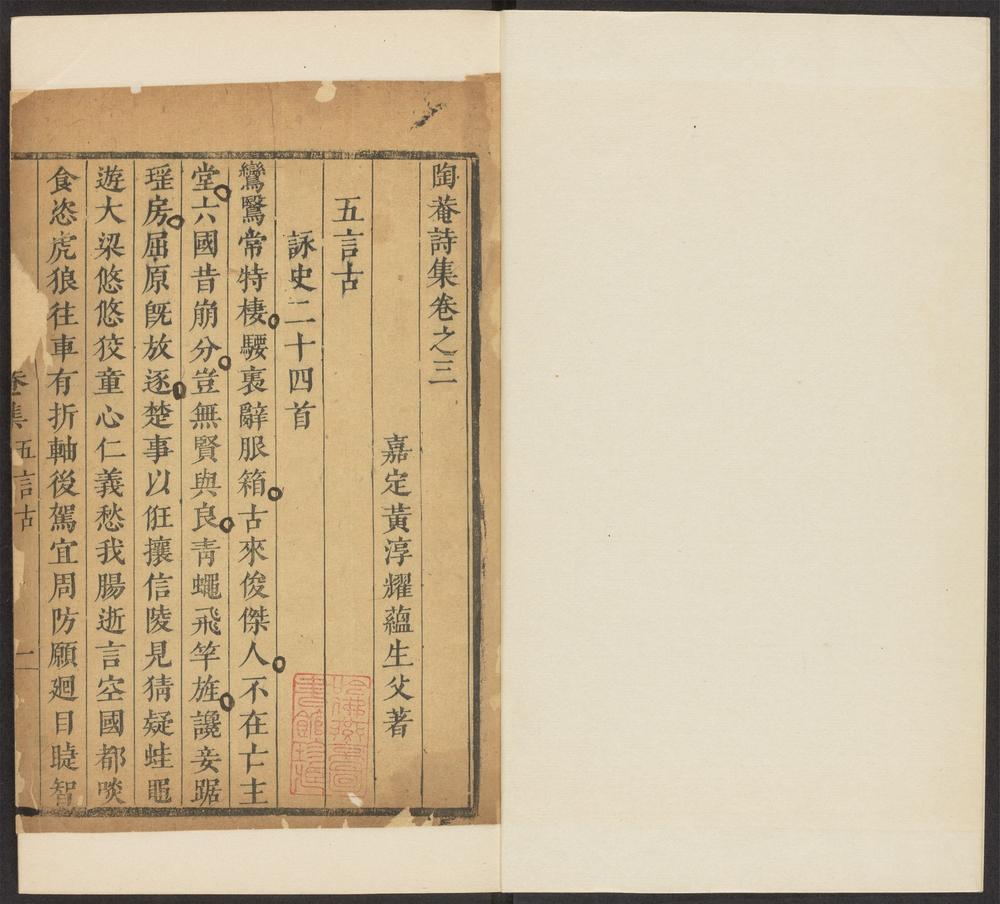 陶菴詩集卷之三
嘉定黃淳耀蘊生父著
五言古
詠史二十四首
鸞鷖常特棲騕裊辭服箱古來俊傑人不在亡主
堂六國昔崩分豈無賢與良青蠅飛竿旌讒妾踞
瑶房屈原旣放逐楚事以俇攘信陵見猜疑蛙黽
遊大梁悠悠狡童心仁義愁我腸逝言空國都啖
食恣虎狼往車有折軸後駕宜周防願廻目睫智
集 五言古 一